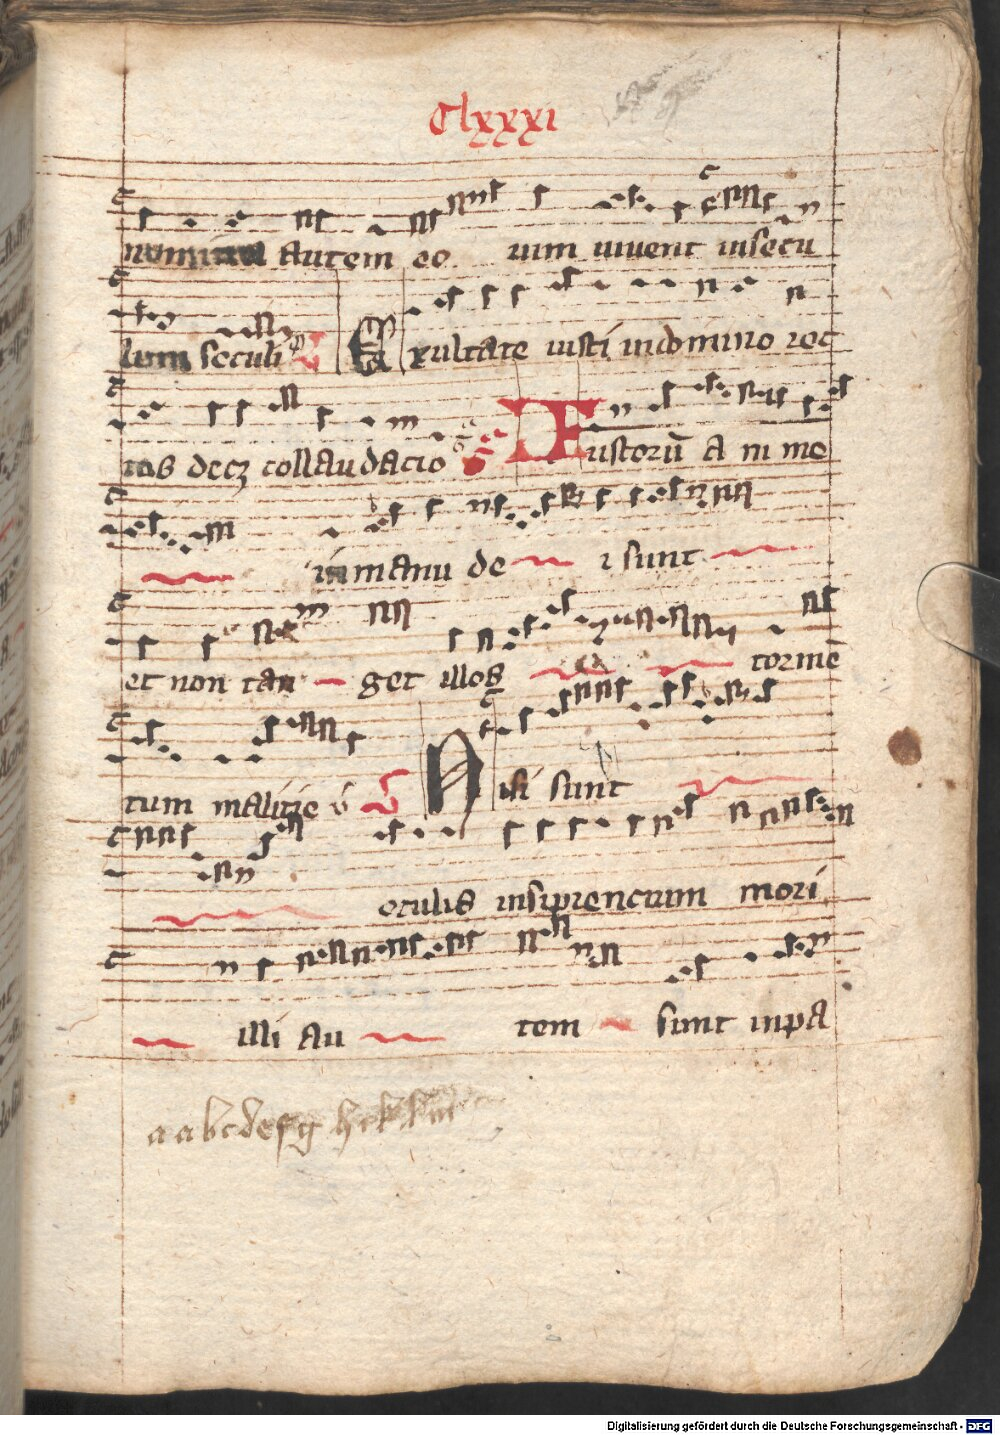 Clxxxi
nomina autem eo rum vivent in secu
lum seculi Exultate iusti in domino rec
tos decz collaudacio Iustorū a ni me
in manu de i sunt
et non tan get illos tormē
tum malicie v̄ Nisi sunt
oculis insipiencium mori
illi au tem sunt in pa
a a b c d e f g h i k l m
Digitalisierung gefördert durch die Deutsche Forschungsgemeinschaft - DFG